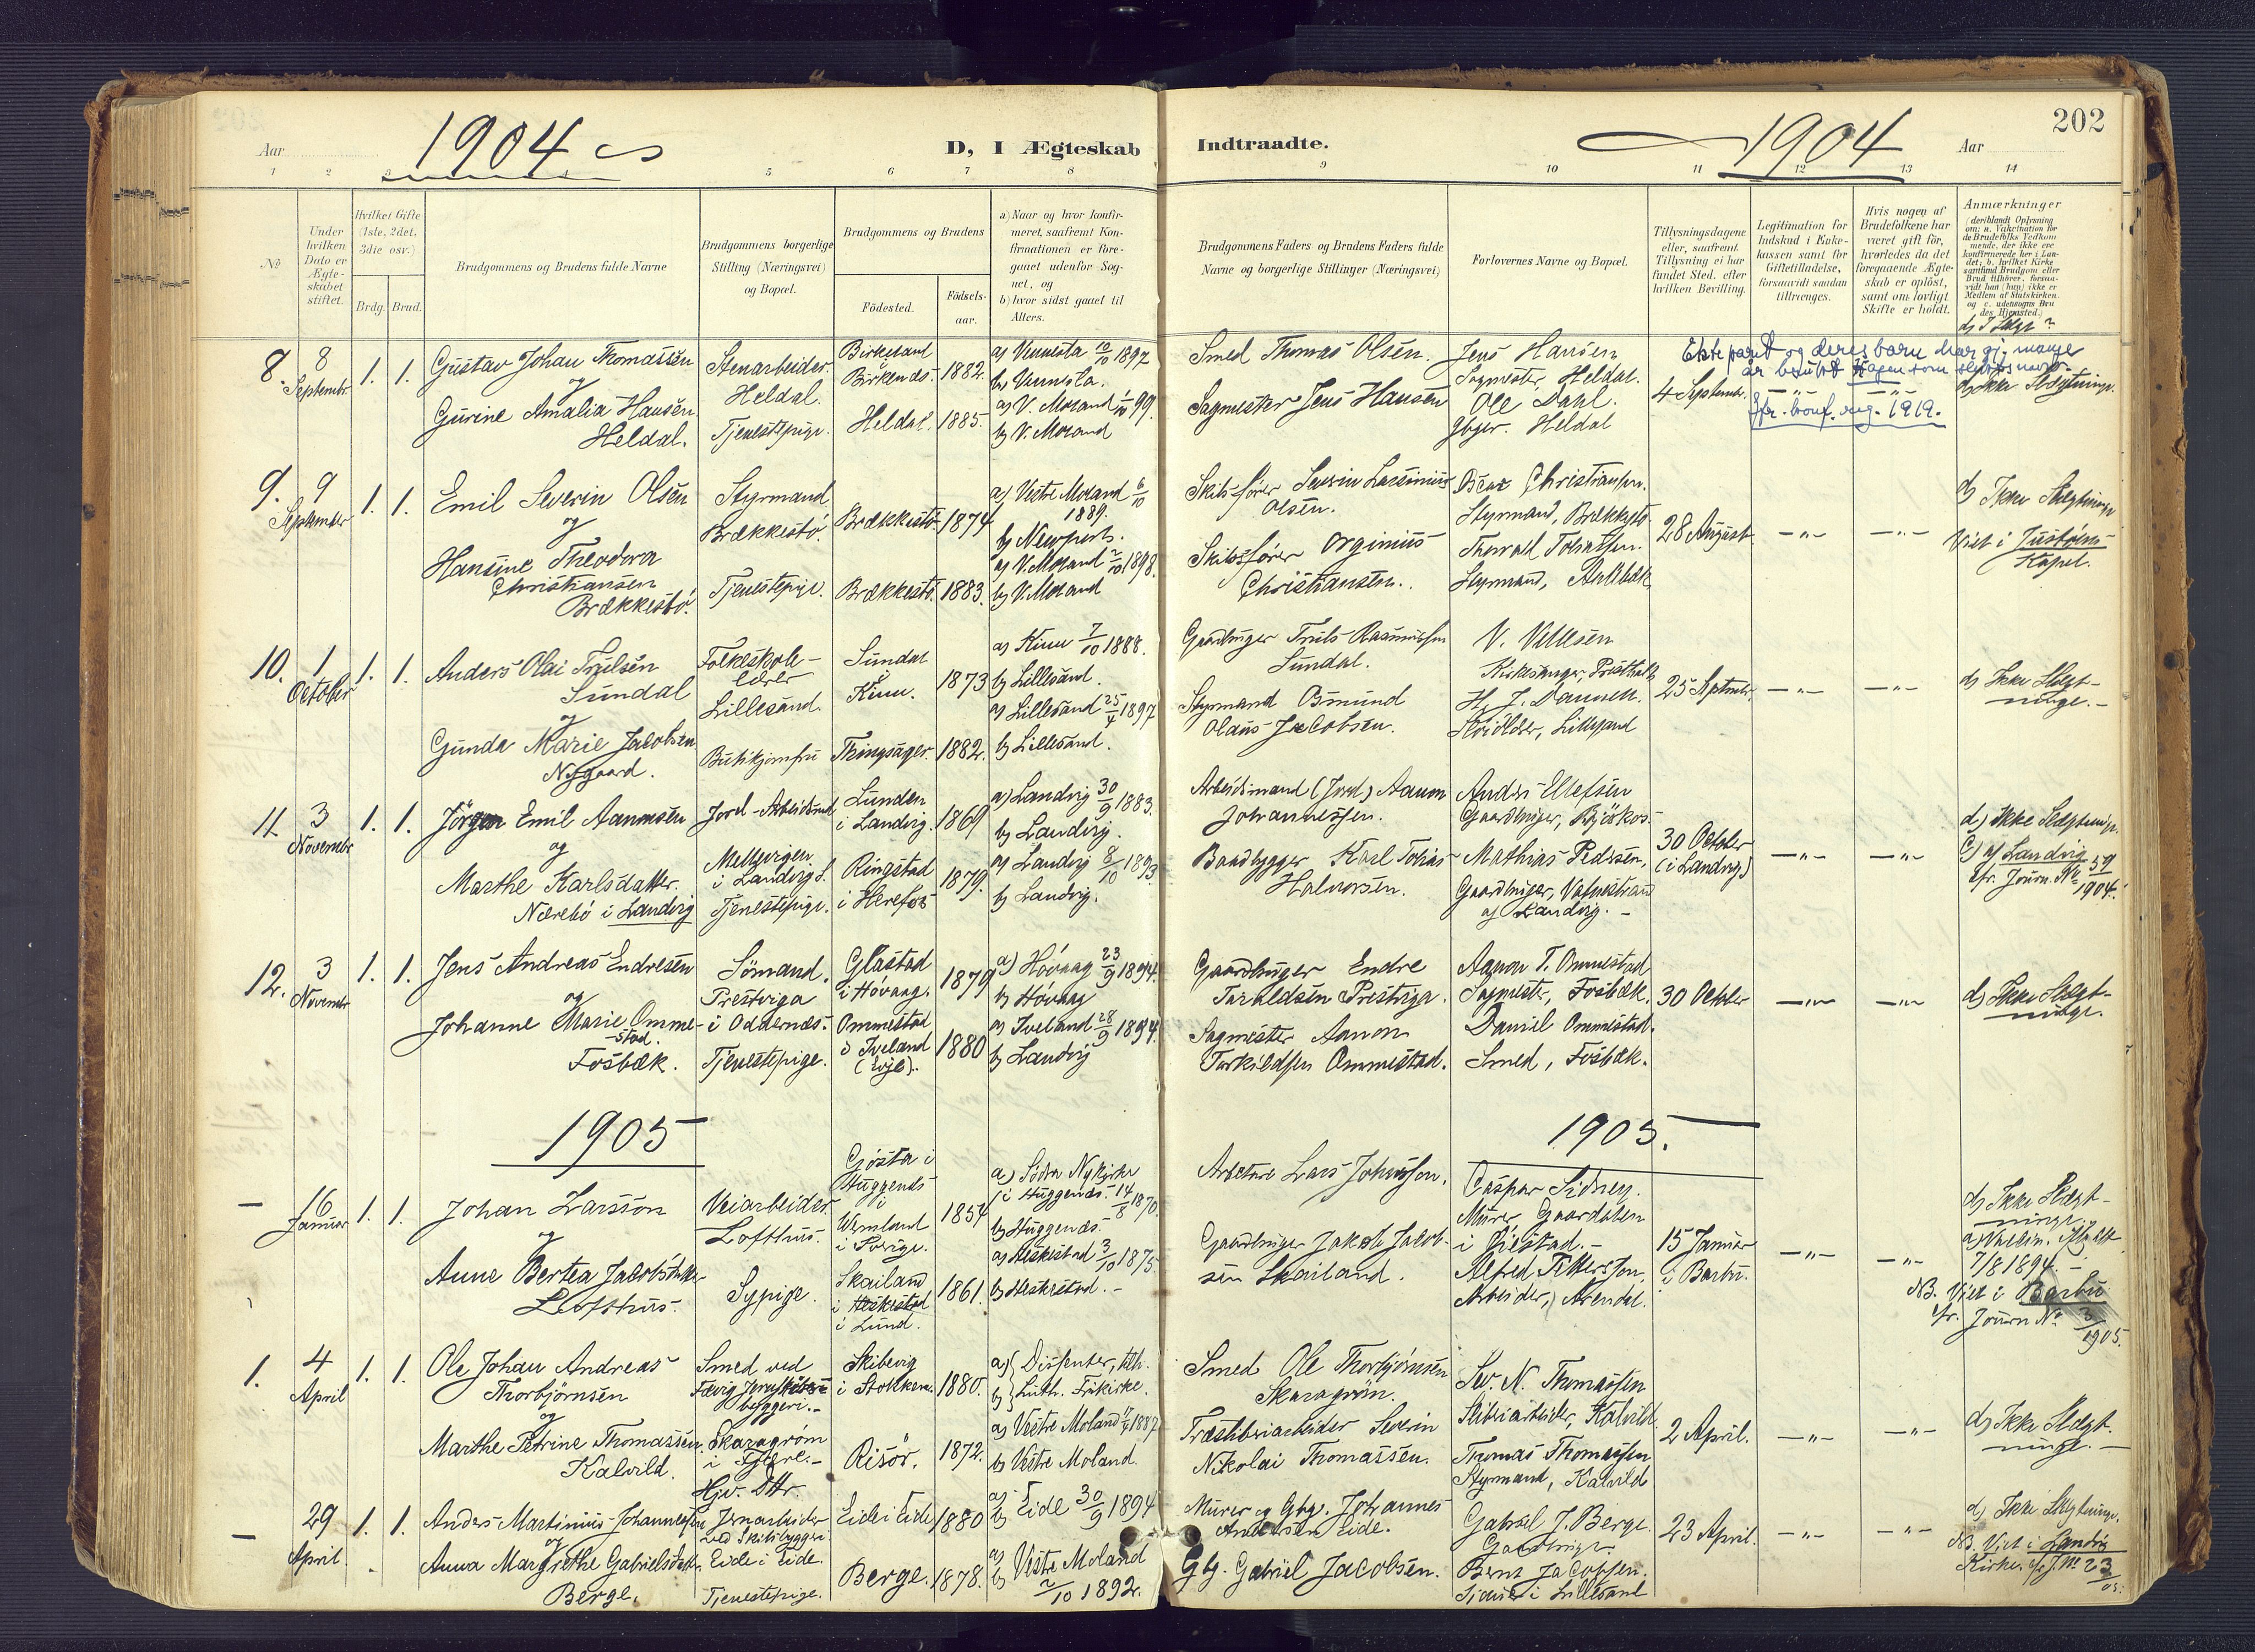 202
Aar 1904
D, I Ægteskab Indtraadte.
1904 Aar
1 2 3 5 6 7 8 9 10 11 12 13 14
№
Under hvilken Dato er Ægteskabet stiftet.
Hvilket Gifte (1ste, 2det, 3die osv.)
Brdg. Brud.
Brudgommens og Brudens fulde Navne
Brudgommens borgerlige Stilling (Næringsvei) og Bopæl.
Brudgommens og Brudens
Födested.
Födsels-aar.
a) Naar og hvor konfirmeret, saafremt Konfirmationen er foregaaet udenfor Sognet, og
b) hvor sidst gaaet til Alters.
Brudgommens Faders og Brudens Faders fulde Navne og borgerlige Stillinger (Næringsvei)
Forlovernes Navne og Bopæl.
Tillysningsdagene eller, saafremt Tillysning ei har fundet Sted, efter hvilken Bevilling.
Legitimation for Indskud i Enkekassen samt for Giftetilladelse, forsaavidt saadan tiltrænges.
Hvis nogen af Brudefolkene har været gift för, hvorledes da det foregaaende Ægteskab er oplöst, samt om lovligt Skifte er holdt.
Anmærkninger
8. 8 Septembr. 1. 1.
Gustav Johan Thomassen
og
Gurine Amalia Hansen
Heldal.
Stenarbeider.
Heldal.
Tjenestepige.
Birkeland
Birkenæs. 1882.
Heldal. 1885.
a) Vennesla 10/10 1897
b) Vennesla.
a) V. Moland 1/10 99.
b) V. Moland
Smed Thomas Olsen.
Sagmester Jens Hansen
Jens Hansen
Sagmester, Heldal.
Ole Dahl.
Gbgr. Heldal
4 Septembr.
Ekteparet og deres barn har gj. mange
år brukt Hagen som slektsnavn.
Jfr. konf. reg. 1919.
d) Ikke Slægtninge.
9. 9 September 1. 1.
Emil Severin Olsen
og
Hansine Theodora
Christiansen
Brækkestö.
Styrmand
Brækkestö.
Tjenestepige.
Brækkestö 1874
Brækkestö. 1883.
a) Vestre Moland 6/10
1889.
b) Newport.
a) V. Moland 2/10 1898.
b) V. Moland
Skibsförer Severin
Olsen.
Skibsförer Orginius
Christiansen.
Christiansen.
Styrmand, Brækkestö
Thorvald Tobiassen.
Styrmand,
28 August
d) Ikke Slægtninge
Viet i Justöens
Kapel.
10. 1 October 1. 1.
Anders Olai Trulsen
Sundal
og
Gunda Marie Jacobsen
Nygaard.
Folkeskole-
lærer
Lillesand.
Butikjomfru
Sundal
Kinn. 1873
Thingsager. 1882.
a) Kinn 7/10 1888.
b) Lillesand.
a) Lillesand 25/4 1897
b) Lillesand.
Gaardbruger Truls Rasmussen
Sundal.
Styrmand Osmund
Olaus Jacobsen.
V. Vellesen
Kirkesanger,
H. J. Dannevi.
Lillesand
25 Septmbr.
d) Ikke Slægt-
ninge.
11. 3 Novembr 1. 1.
Jörgen Emil Aanonsen
og
Marthe Karlsdatter.
Nærebö i Landvig
Jord-Arbeidsmd
Mellevigen
i Landvig S.
Tjenestepige.
Lunden
i Landvig. 1869
Ringstad
i Herefos 1879.
a) Landvig 30/9 1883.
b) Landvig.
a) Landvig 8/10 1893.
b) Landvig.
Arbeidsmand (Jord) Aanon
Johannessen.
Baadbygger Karl Tobias
Halvorsen.
Anders Ellefsen
Gaardbruger,
Mathias Pedersen,
Gaardbruger,
af Landvig.
30 October
(i Landvig)
d) Ikke Slægtninge.
c) af Landvig
cfr. Journ. No 59/1904.
12. 3 Novembr 1. 1.
Jens Andreas Endresen
og
Johanne Marie Omme-
stad.
Fosbæk.
Sömand.
Prestviga
i Oddernæs.
Tjenestepige.
Glastad
i Hövaag. 1879
Ommestad
i Iveland
(Evje). 1880
a) Hövaag 23/9 1894.
b) Hövaag
a) Iveland 28/9 1894.
b) Landvig
Gaardbruger Endre
Taraldsen Prestviga.
Sagmester Aanon
Tarkildsen Ommestad.
Aanon T. Ommestad
Sagmester, Fosbæk.
Daniel Ommestad.
Smed, Fosbæk.
30 October
d) Ikke Slægt-
ninge.
1905 1905.
— 16 Januar 1. 1.
Johan Larsson
og
Anne Bertea Jacobsdatter
Lofthus.
Veiarbeider
Lofthus.
Sypige.
Gjösta i
Huggenæs
i
Wermland
i Sverige. 1854
Skailand
i Heskestad
i Lund. 1861.
a) Södra Nykirke
(i Huggenæs. 14/8 1870.
b) Huggenæs.
a) Heskestad 3/10 1875.
b) Heskestad.
Arbeider Lars Johnssson.
Gaardbruger Jakob Jacob-
sen Skailand.
Caspar Sidney.
Murer Gaardalen
i Öiestad.
Alfred Pettersson,
Arbeider, Arendal.
15 Januar
i Barbu.
d) Ikke Slægt-
ninge.
7/8 1894.
NB. Viet i Barbu
cfr. Journ No 3/1905.
1. 4 April 1. 1.
Ole Johan Andreas
Thorbjörnsen
og
Marthe Petrine Thomassen
Kalvild.
Smed ved
Fævig Jernskibs-
byggeri.
Skaragröm
i Fjære.
Hjv. Dttr.
Skibevig
i Stokken. 1880.
Risör. 1872.
a) b) Dissenter, tilh.
Luth. Frikirke.
a) Vestre Moland 1887
b) Vestre Moland.
Smed Ole Thorbjörnsen
Skaragröm.
Træsliberiarbeider Severin
Nikolai Thomassen.
Sev. N. Thomassen
Sliberiarbeider, Kalvild
Thomas Thomassen
Styrmand, Kalvild
2 April.
d) Ikke Slægt-
ninge.
— 29 April 1. 1.
Anders Martinius Johannessen
og
Anna Margrethe Gabrielsdatter
Berge.
Jernarbeider
ved Skibsbyggeri
Eide i Eide.
Tjenestepige.
Eide i Eide 1880
Berge. 1878.
a) b) Eide 30/9 1894
a) b) Vestre Moland
2/10 1892.
Murer og Gbg. Johannes
Andersen Eide.
Gbg. Gabriel Jacobsen.
Gabriel J. Berge
Gaardbruger.
Bernt Jacobsen.
i Lillesand
23 April.
d) Ikke Slægtninge.
NB. Viet i Landvig
Kirke. cfr J. No 23/05.